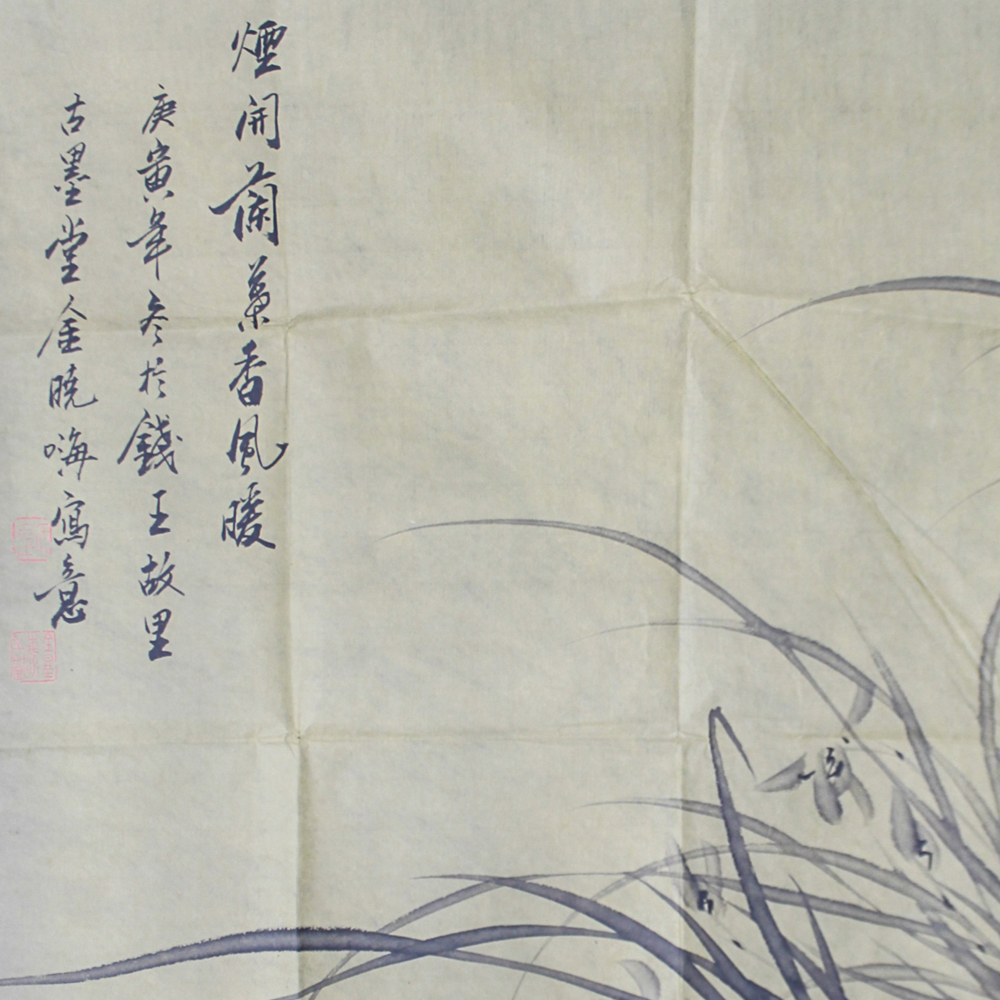 煙開蘭葉香風暖
庚寅年冬於錢王故里
古墨堂金曉海寫意